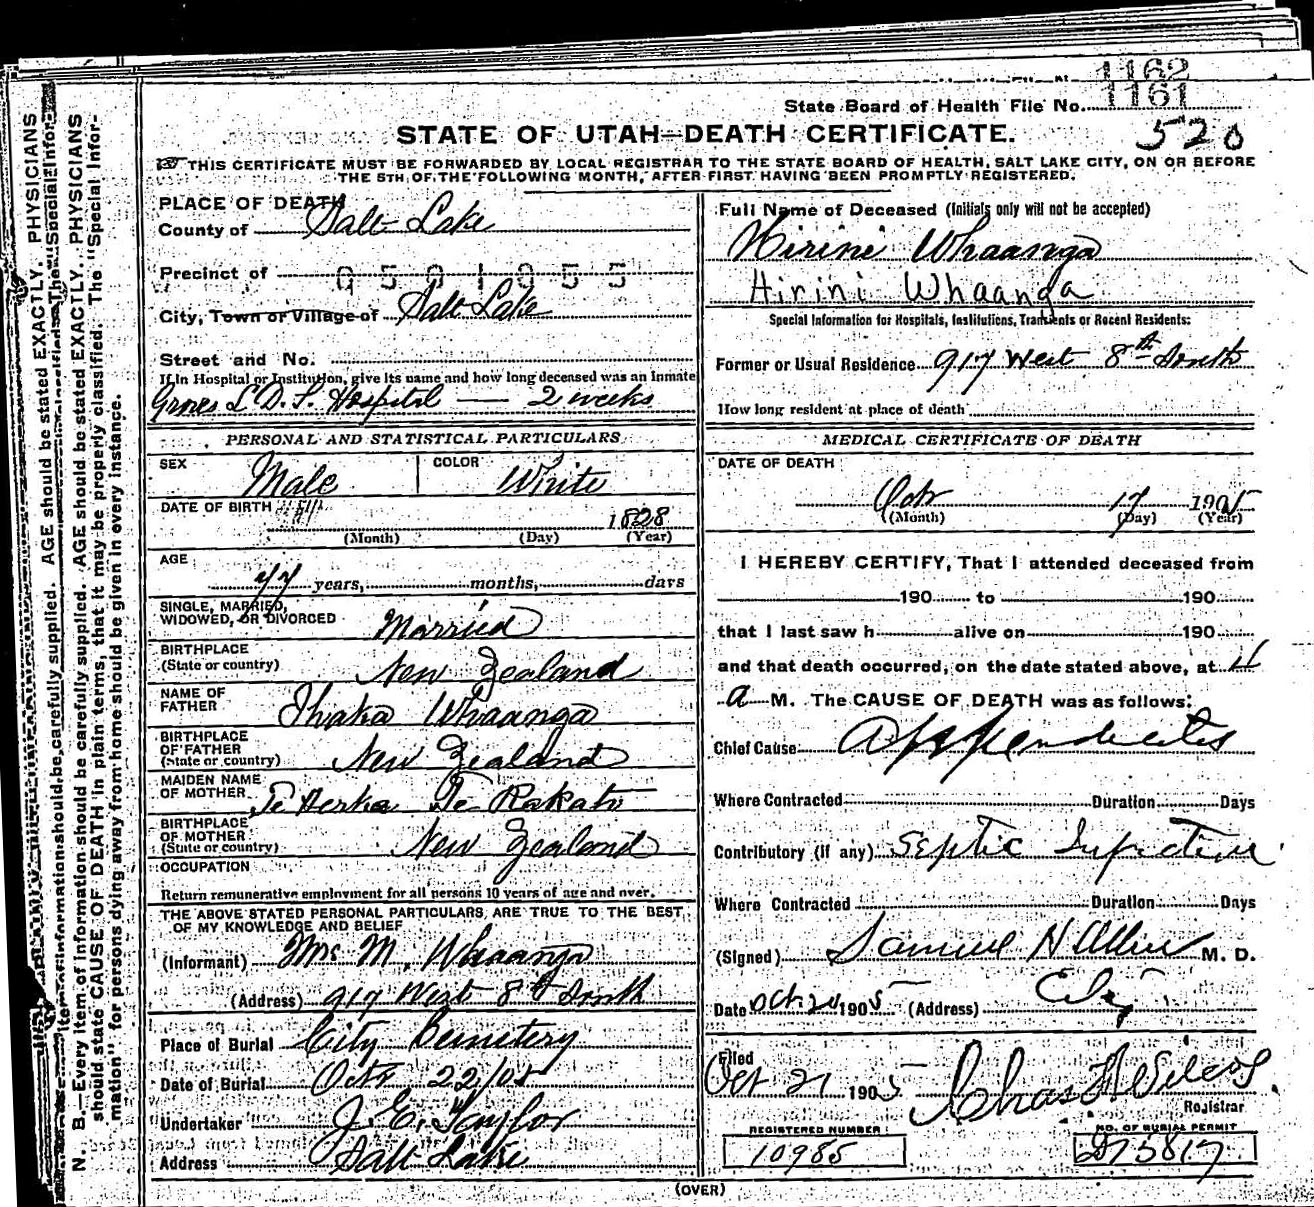 1162
State Board of Health File No. 1161
520
STATE OF UTAH—DEATH CERTIFICATE.
THIS CERTIFICATE MUST BE FORWARDED BY LOCAL REGISTRAR TO THE STATE BOARD OF HEALTH, SALT LAKE CITY, ON OR BEFORE
THE 5TH OF THE FOLLOWING MONTH, AFTER FIRST HAVING BEEN PROMPTLY REGISTERED.
PLACE OF DEATH
County of Salt Lake
Precinct of 0501955
City, Town or Village of Salt Lake
Street and No.
If in Hospital or Institution, give its name and how long deceased was an inmate
Groves L.D.S. Hospital — 2 weeks
PERSONAL AND STATISTICAL PARTICULARS
SEX Male COLOR White
DATE OF BIRTH 1828
(Month) (Day) (Year)
AGE
77 years, months, days
SINGLE, MARRIED,
WIDOWED, OR DIVORCED Married
BIRTHPLACE
(State or country) New Zealand
NAME OF
FATHER Ihaka Whaanga
BIRTHPLACE
OF FATHER
(State or country) New Zealand
MAIDEN NAME
OF MOTHER Te Rakato
BIRTHPLACE
OF MOTHER
(State or country) New Zealand
OCCUPATION
Return remunerative employment for all persons 10 years of age and over.
THE ABOVE STATED PERSONAL PARTICULARS ARE TRUE TO THE BEST
OF MY KNOWLEDGE AND BELIEF
(Informant) Mrs M. Whaanga
(Address) 917 West 8th South
Place of Burial City Cemetery
Date of Burial Oct 22/05
Undertaker J. E. Taylor
Address Salt Lake
Full Name of Deceased (Initials only will not be accepted)
Hirini Whaanga
Hirini Whaanga
Special Information for Hospitals, Institutions, Transients or Recent Residents:
Former or Usual Residence 917 West 8th South
How long resident at place of death
MEDICAL CERTIFICATE OF DEATH
DATE OF DEATH
Oct 17 1905
(Month) (Day) (Year)
I HEREBY CERTIFY, That I attended deceased from
190 to 190
that I last saw h alive on 190
and that death occurred, on the date stated above, at 4
a M. The CAUSE OF DEATH was as follows:
Chief Cause Appendicitis
Where Contracted Duration Days
Contributory (if any) Septic Infection
Where Contracted Duration Days
(Signed) Samuel H Allen M. D.
Date Oct 20 1905 (Address) City
Filed
Oct 21 1905
Registrar
REGISTERED NUMBER
10985
NO. OF BURIAL PERMIT
D75817
(OVER)
N. B.—Every item of information should be carefully supplied. AGE should be stated EXACTLY. PHYSICIANS
should state CAUSE OF DEATH in plain terms, that it may be properly classified. The "Special Infor-
mation" for persons dying away from home should be given in every instance.